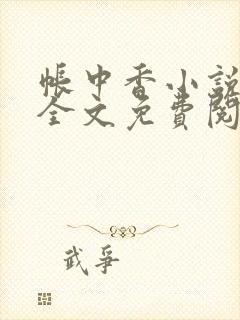 帳中香小說
全文免費閱
武爭